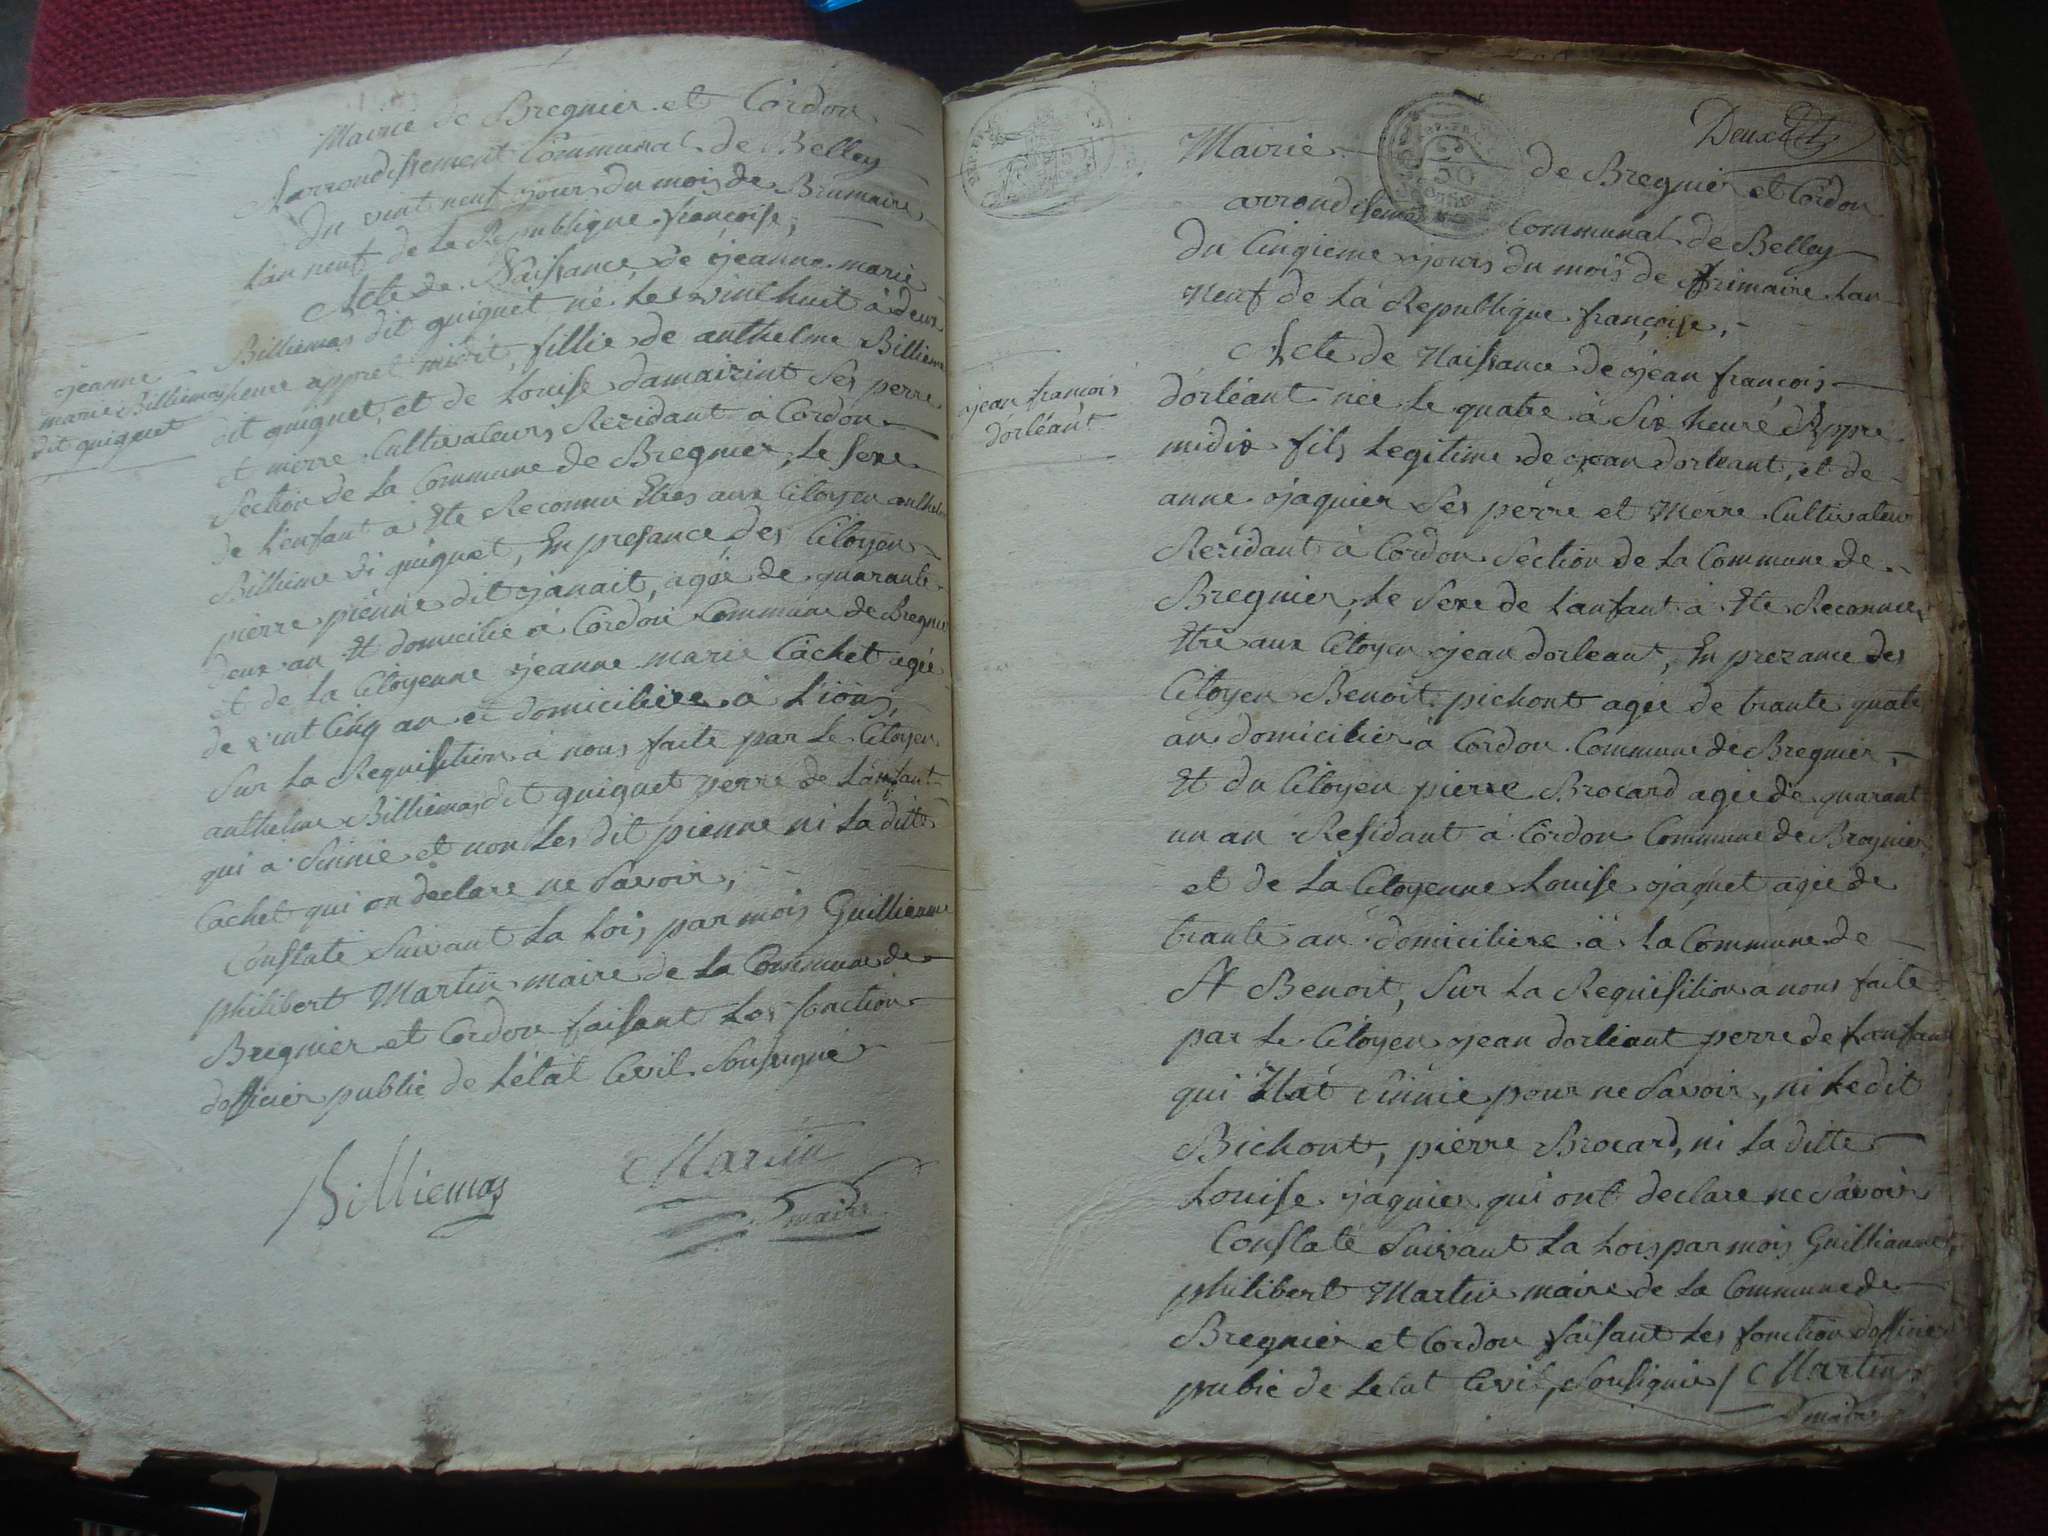 Mairie de Bregnier et Cordon
arrondissement Communal de Belley
du vint neuf jours du mois de Brumaire
lan neuf de la Republique françoise,
Acte de Naissance de jeanne marie
Billiemas dit guiguet né le vint huit à deux
heure appret midit, fillie de anthelme Billiemas
dit guiguet, et de Louise damaizint Ses perre
et merre Cultivateurs Rezidant à Cordon
Section de La Commune de Bregnier, Le Sexe
de Lenfant à Ete Reconnu Etres aux Citoyen anthelme
Billieme di guiguet, En presance des Citoyen
pierre pienne dit janait, agée de quarante
deux an Et domicilié à Cordon Commune de Bregnier
et de La Citoyenne jeanne marie Cachet agée
de vint Cinq an et domiciliere à Lion,
Sur La Requisition à nous faite par Le Citoyen
anthelme Billiemas dit guiguet perre de Lanfant
qui a Sinnie et non Les dit pienne ni La ditte
Cachet qui on declare ne Savoir,
Constaté Suivant La Loi, par mois Guillianme
philibert Martin maire de La Commune de
Bregnier et Cordon faisant Les fonction
dofficier public de Létat Civil Sousigné
Billiemas Martin
maire
jeanne
marie Billiemas
dit guiguet
Mairie de Bregnier et Cordon
arrondisement Communal de Belley
du Cinqieme jours du mois de frimaire Lan
neuf de La Republique françoise,
Acte de Naissance de jean françois
dorléant née Le quatre à Six heure Appré
midix fils Legitime de jean dorleant, et de
anne jaquier Ses perre et Merre Cultivateur
Rezidant à Cordon Section de La Commune de
Bregnier, Le Sexe de Lanfant à Ete Reconnue
Etre aux Citoyen jean dorleant, En prezance des
Citoyen Benoit pichont agée de trante quatre
an domicilier à Cordon Commune de Bregnier,
Et du Citoyen pierre Brocard agée de quarant
un an Residant à Cordon Commune de Bregnier
et de La Citoyenne Louise jaquet agée de
trante an domiciliere à La Commune de
St Benoit, Sur La Requisition a nous faite
par Le Citoyen jean dorleant perre de Lanfant
qui Nat Sinnie pour ne Savoir, ni Ledit
Bichont, pierre Brocard, ni La ditte
Louise jaquier qui ont declare ne Savoir
Constaté Suivant La Loi, par mois Guillianme
philibert Martin maire de La Commune de
Bregnier et Cordon faisant Les fonction dofficier
pubic de Letat Civil, Sousignie / Martin
maire
jean francois
dorléant
50